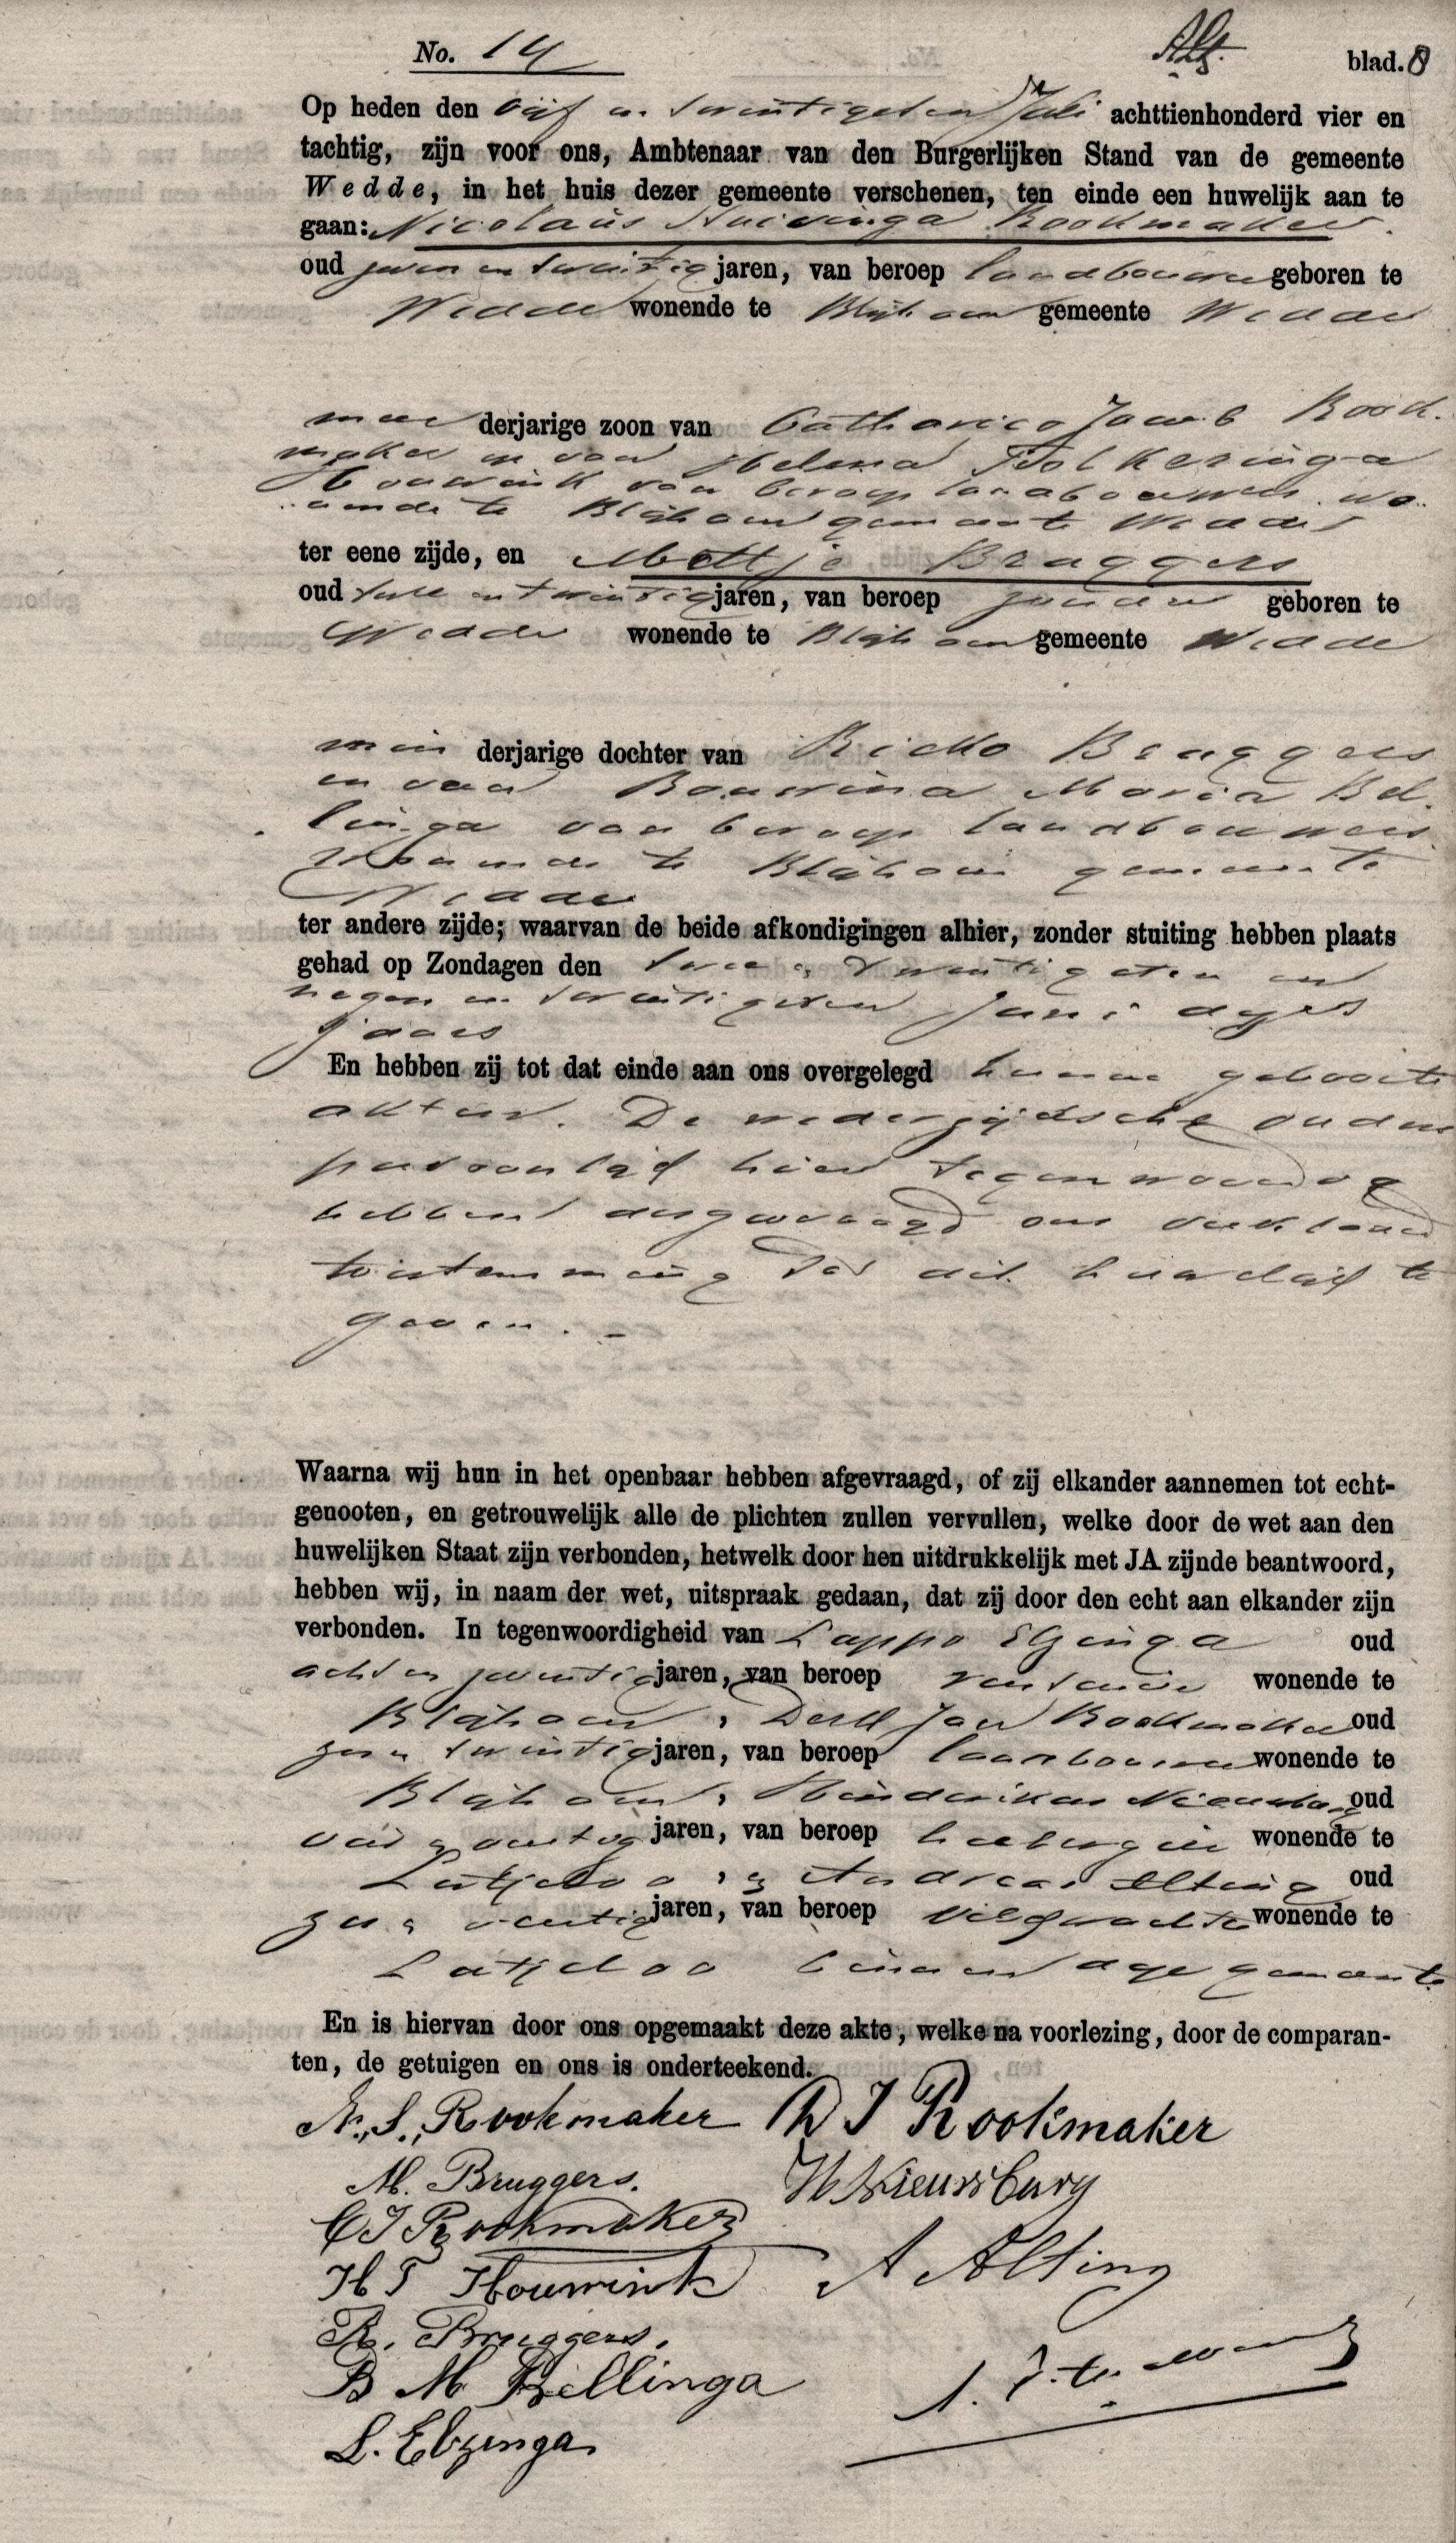 No. 14 blad. 8
Op heden den vijf en twintigsten Juli achttienhonderd vier en
tachtig, zijn voor ons, Ambtenaar van den Burgerlijken Stand van de gemeente
Wedde, in het huis dezer gemeente verschenen, ten einde een huwelijk aan te
gaan: Nicolaus Huizinga Rookmaker
oud zeven en twintig jaren, van beroep landbouwer geboren te
Wedde wonende te Blijham gemeente Wedde
meer derjarige zoon van Jacob Rook-
maker en van Helena Tolkeringa
Houwink van beroep landbouwers wo-
nende te Blijham gemeente Wedde
ter eene zijde, en Mettje Bruggers
oud twee en twintig jaren, van beroep zonder geboren te
Wedde wonende te Blijham gemeente Wedde
min derjarige dochter van Ricko Bruggers
en van Bouwina Maria Bel-
linga van beroep landbouwers
wonende te Blijham gemeente
Wedde
ter andere zijde; waarvan de beide afkondigingen alhier, zonder stuiting hebben plaats
gehad op Zondagen den twee en twintigsten en
negen en twintigsten Juni dezes
jaars
En hebben zij tot dat einde aan ons overgelegd hunne geboorte
akten. De wederzijdsche ouders
persoonlijk hier tegenwoordig
hebben desgevraagd ons verklaard
toestemming tot dit huwelijk te
geven. -
Waarna wij hun in het openbaar hebben afgevraagd, of zij elkander aannemen tot echt-
genooten, en getrouwelijk alle de plichten zullen vervullen, welke door de wet aan den
huwelijken Staat zijn verbonden, hetwelk door hen uitdrukkelijk met JA zijnde beantwoord,
hebben wij, in naam der wet, uitspraak gedaan, dat zij door den echt aan elkander zijn
verbonden. In tegenwoordigheid van Lappo Elzinga oud
acht en zeventig jaren, van beroep rentenier wonende te
Blijham, Derk Jan Rookmaker oud
zes en twintig jaren, van beroep landbouwer wonende te
Blijham, Hindericus Nieuwburg oud
jaren, van beroep herbergier wonende te
Lutjeloo, en Andreas Alting oud
zes en veertig jaren, van beroep veldwachter wonende te
Lutjeloo binnen deze gemeente
En is hiervan door ons opgemaakt deze akte, welke na voorlezing, door de comparan-
ten, de getuigen en ons is onderteekend.
N. S. Rookmaker D J Rookmaker
M. Bruggers. H Nieuwburg
C J Rookmaker
H T Houwink A Alting
R. Bruggers.
B M Bellinga
L. Elzinga